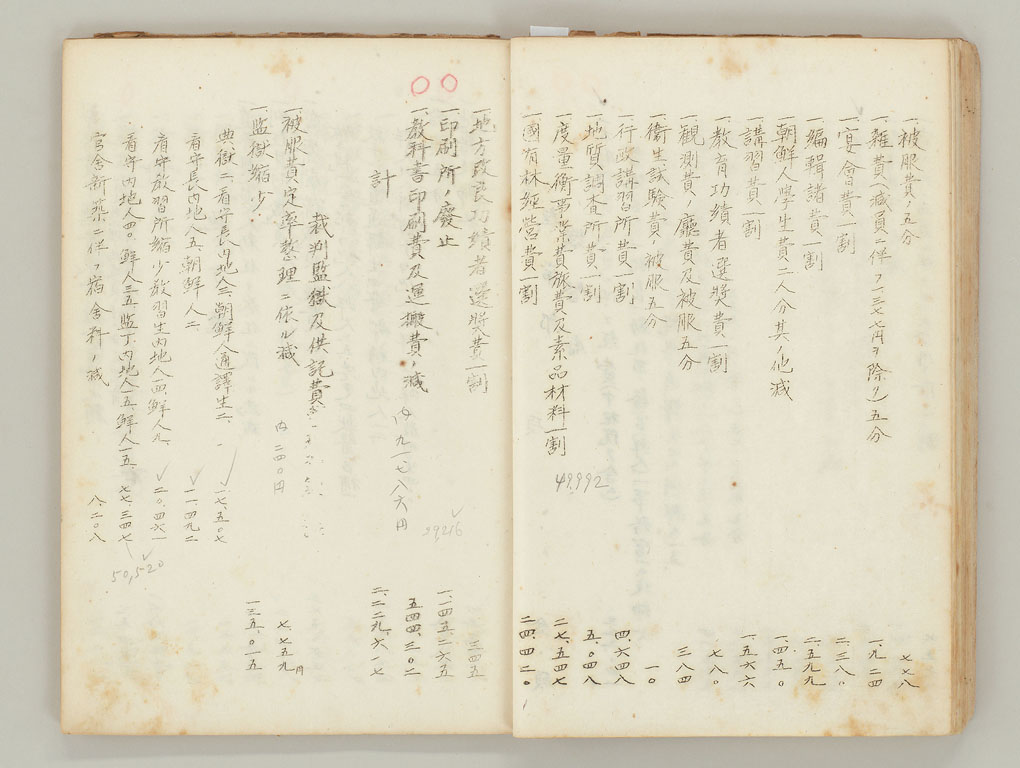 一、被服費ノ五分 七七八
一、雑費(減員ニ伴フ一三七七円ヲ除ク)五分 一、九二四
一、宴會費一割 二、三八〇
一、編輯諸費一割 二、五九九
朝鮮人學生費二人分其ノ他減 一、四五〇
一、講習費一割 一、五六六
一、教育功績者選奬費一割 七八〇
一、觀測費ノ廳費及被服五分 三八四
衛生試驗費ノ被服五分 一〇
一、行政講習所費一割 四、六四八
一、地質調査所費一割 五、〇四八
一、度量衡事業費旅費及素品材料一割 二七、五四七
49,992
一、國有林經營費一割 二四、四二〇
一、地方改良功績者選奬費一割 三四五
一、印刷所ノ廢止 一、一四五、二六五
29,216
一、教科書印刷費及運搬費ノ減 五四四、三〇二
内九一七八六円
計 二、二二九、六一七
裁判監獄及供託費
一、被服費定率整理ニ依ル減 七、七五九円
内二四〇円
一、監獄縮少 一三五、〇一五
典獄二、看守長内地人三、朝鮮人通譯生二、 一七、五〇七
看守長内地人五、朝鮮人二 一一、四九二
看守教習所縮少教習生内地人四、鮮人九、 二〇、四六一
看守内地人四〇、鮮人三五、監丁内地人一五、鮮人一五 七七、三四七
50,520
官舍新築ニ伴フ宿舍料ノ減 八、二〇八